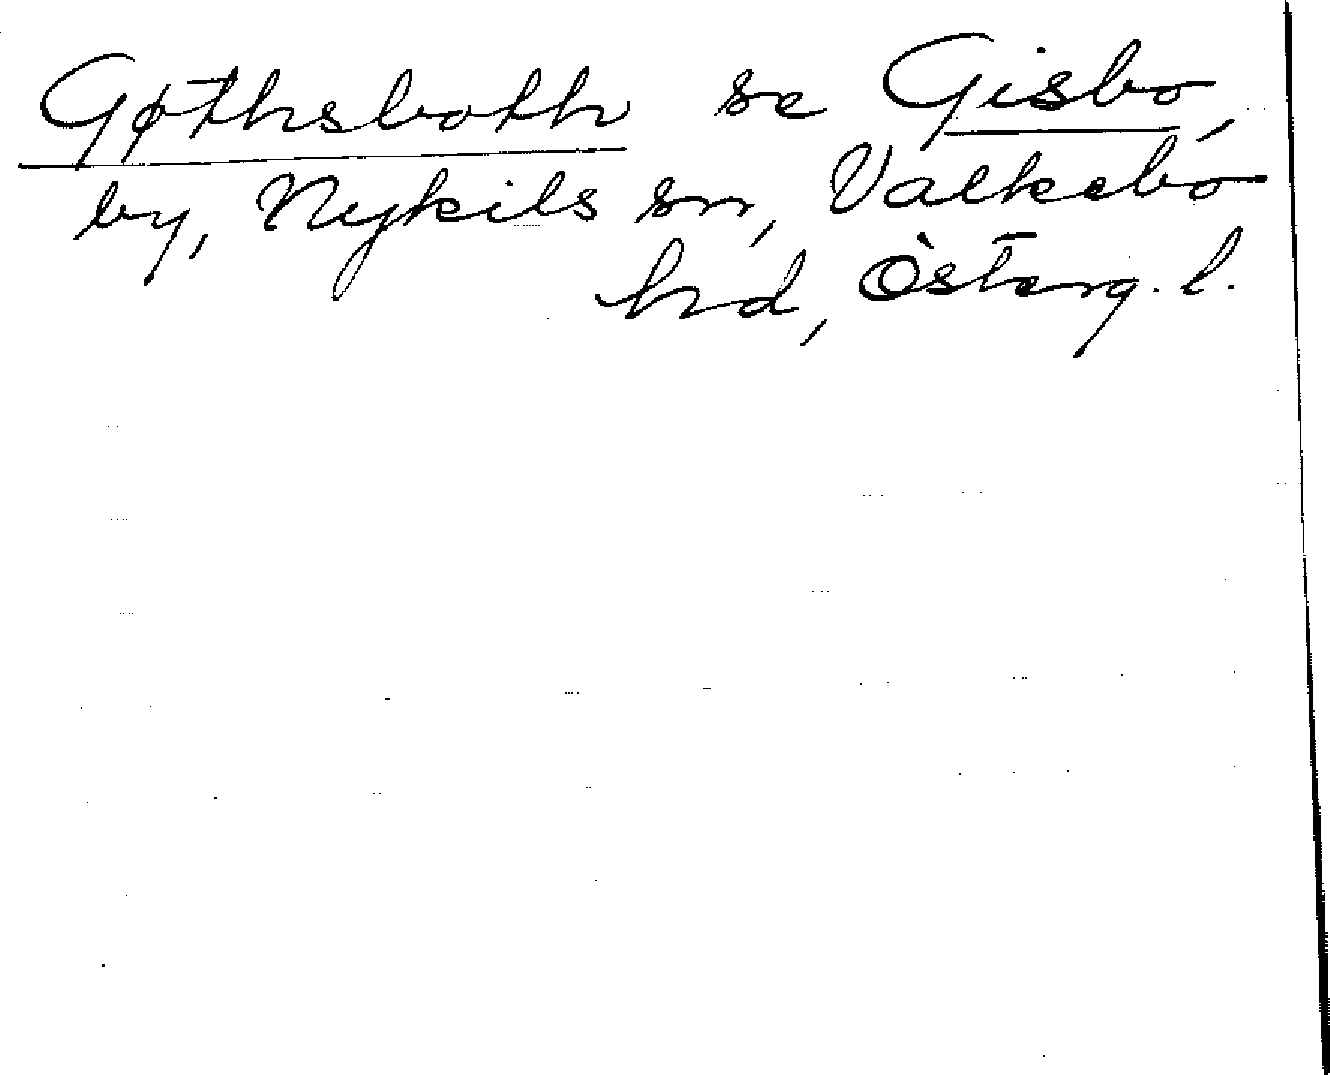 Gøthsboth se Gisbo,
by, Nykils sn, Valkebo
hd, Österg. l.